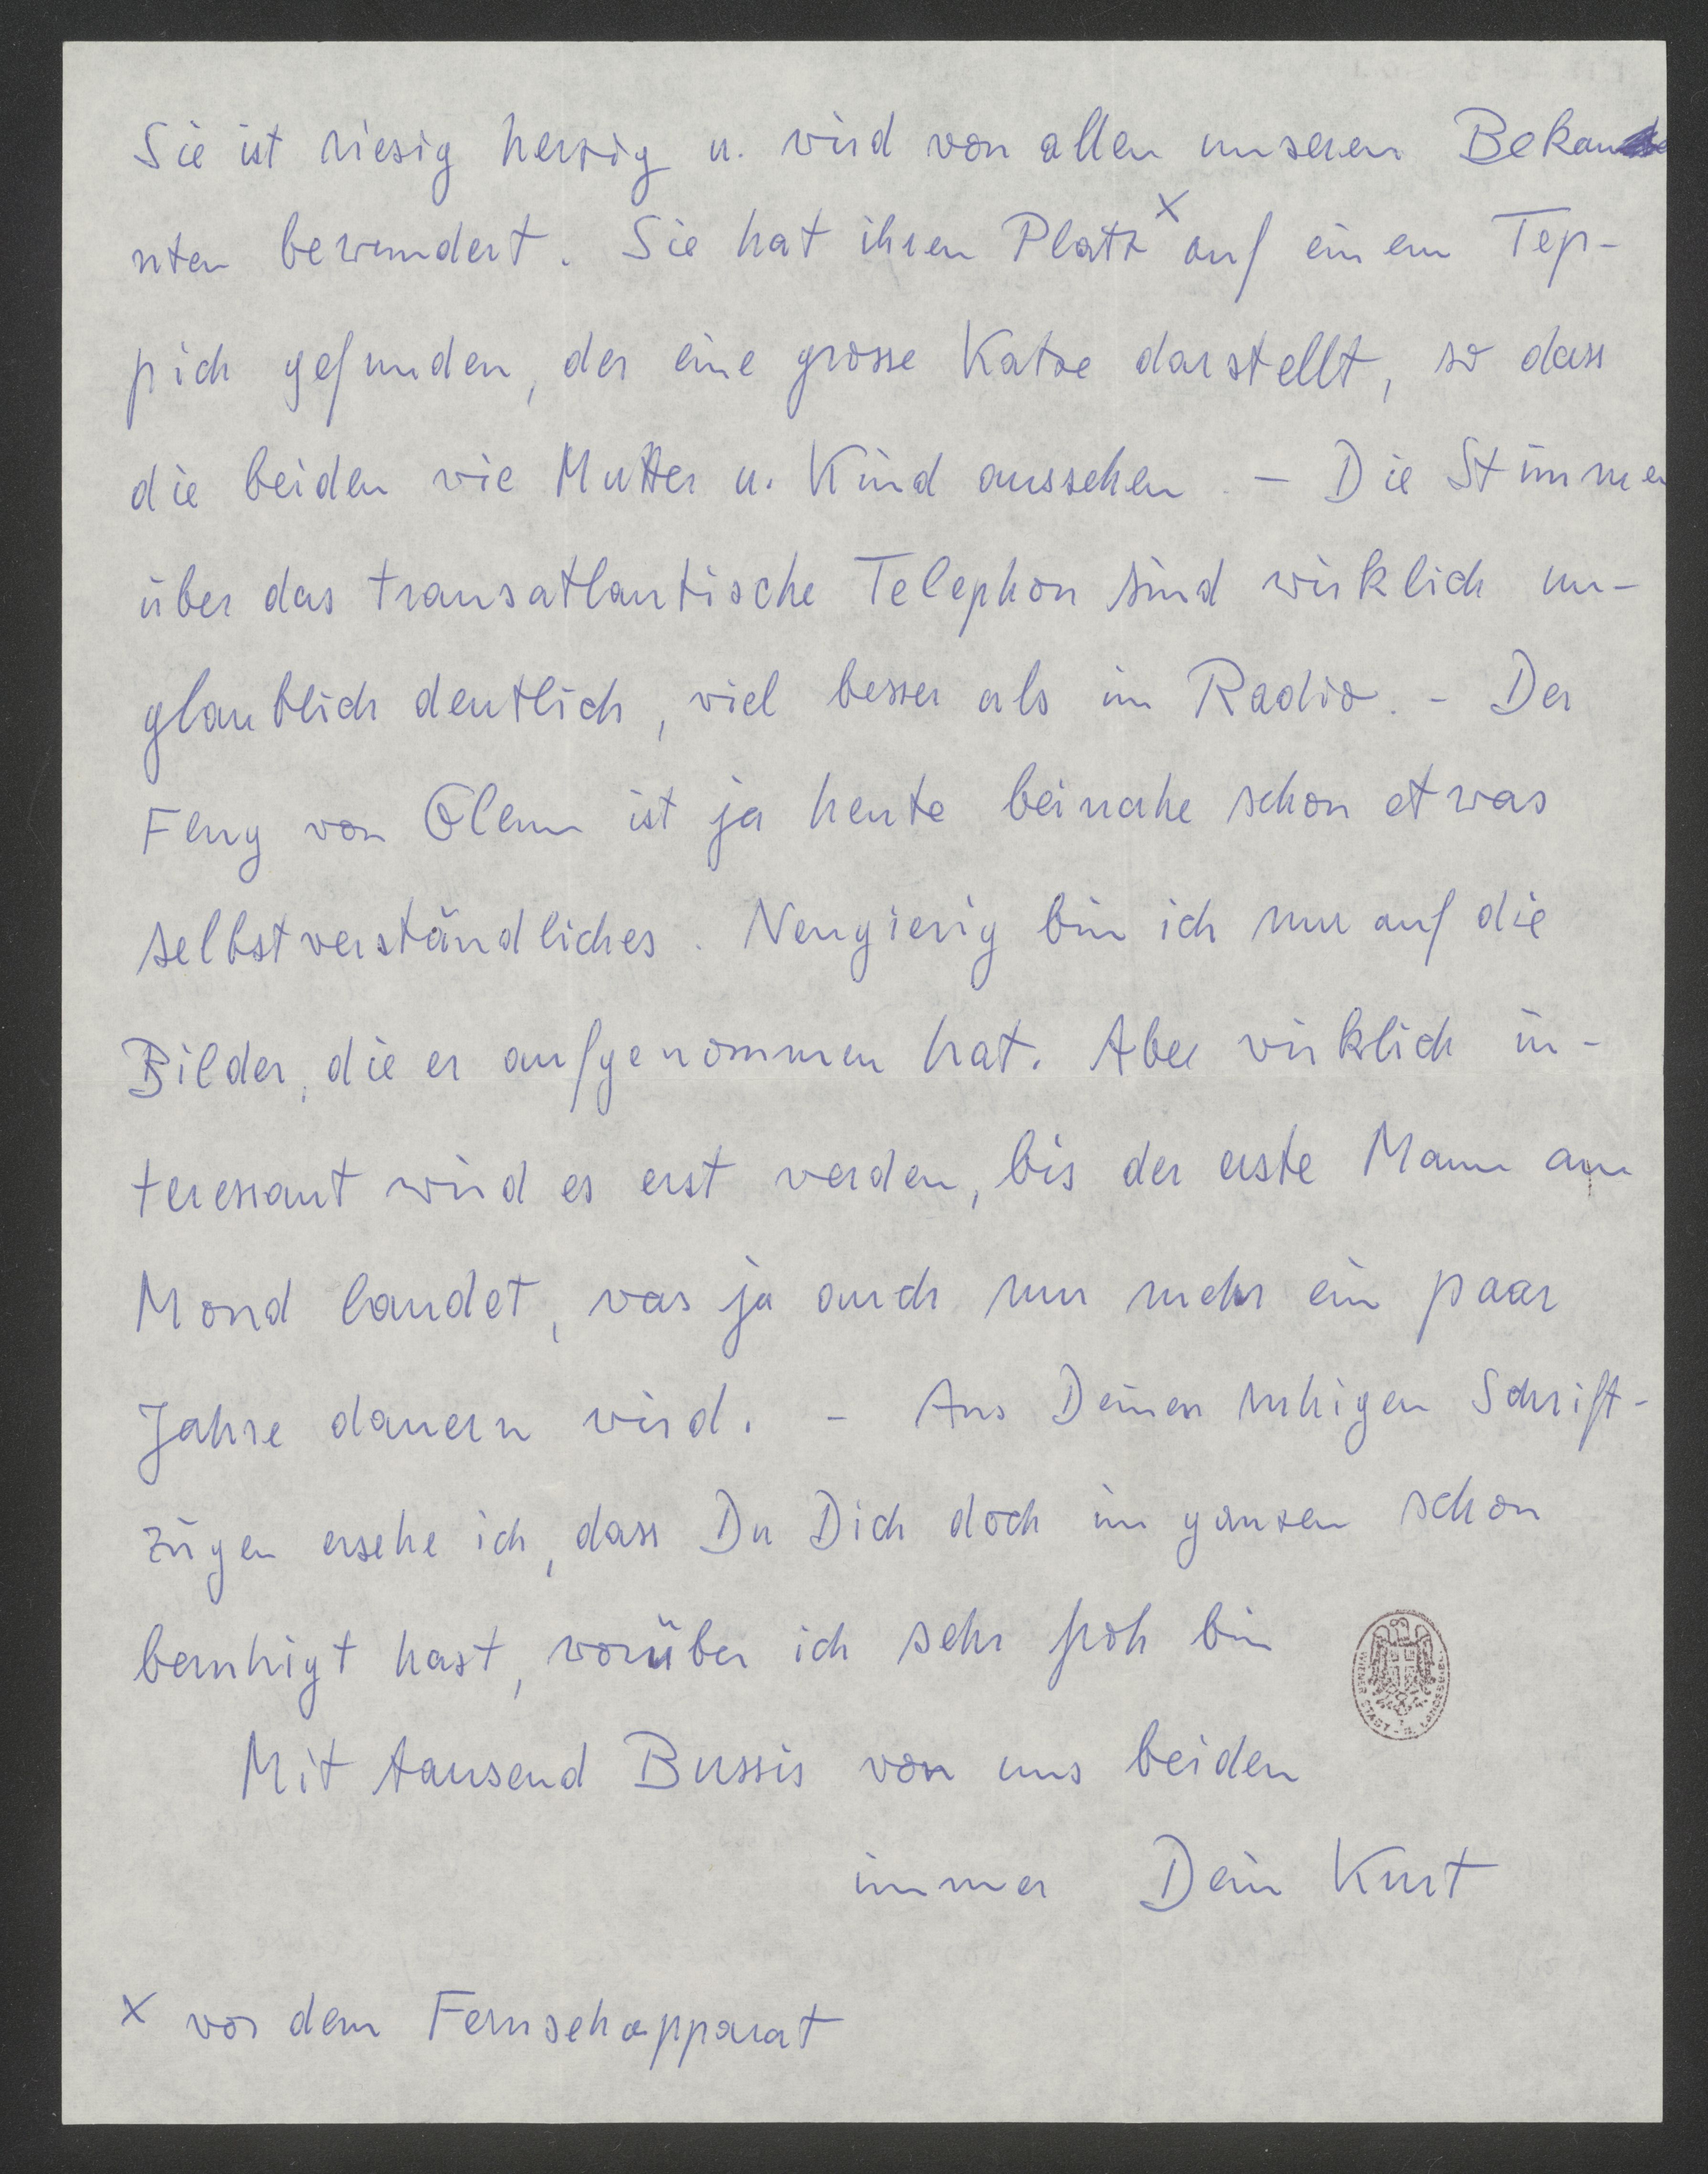 Sie ist riesig herzig u. wird von allen unseren Bekan
nten bewundert. Sie hat ihren Platz x auf einem Tep-
pich gefunden, der eine grosse Katze darstellt, so dass
die beiden wie Mutter u. Kind aussehen. – Die Stimmen
über das transatlantische Telephon sind wirklich un-
glaublich deutlich, viel besser als im Radio. – Der
Flug von Glenn ist ja heute beinahe schon etwas
selbstverständliches. Neugierig bin ich nur auf die
Bilder, die er aufgenommen hat. Aber wirklich in-
teressant wird es erst werden, bis der erste Mann am
Mond landet, was ja auch nur mehr ein paar
Jahre dauern wird. – Aus Deinen ruhigen Schrift-
zügen ersehe ich, dass Du Dich doch im ganzen schon
beruhigt hast, worüber ich sehr froh bin
Mit tausend Bussis von uns beiden
immer Dein Kurt
x vor dem Fernsehapparat
WIENER STADT- U. LANDESBIBL.